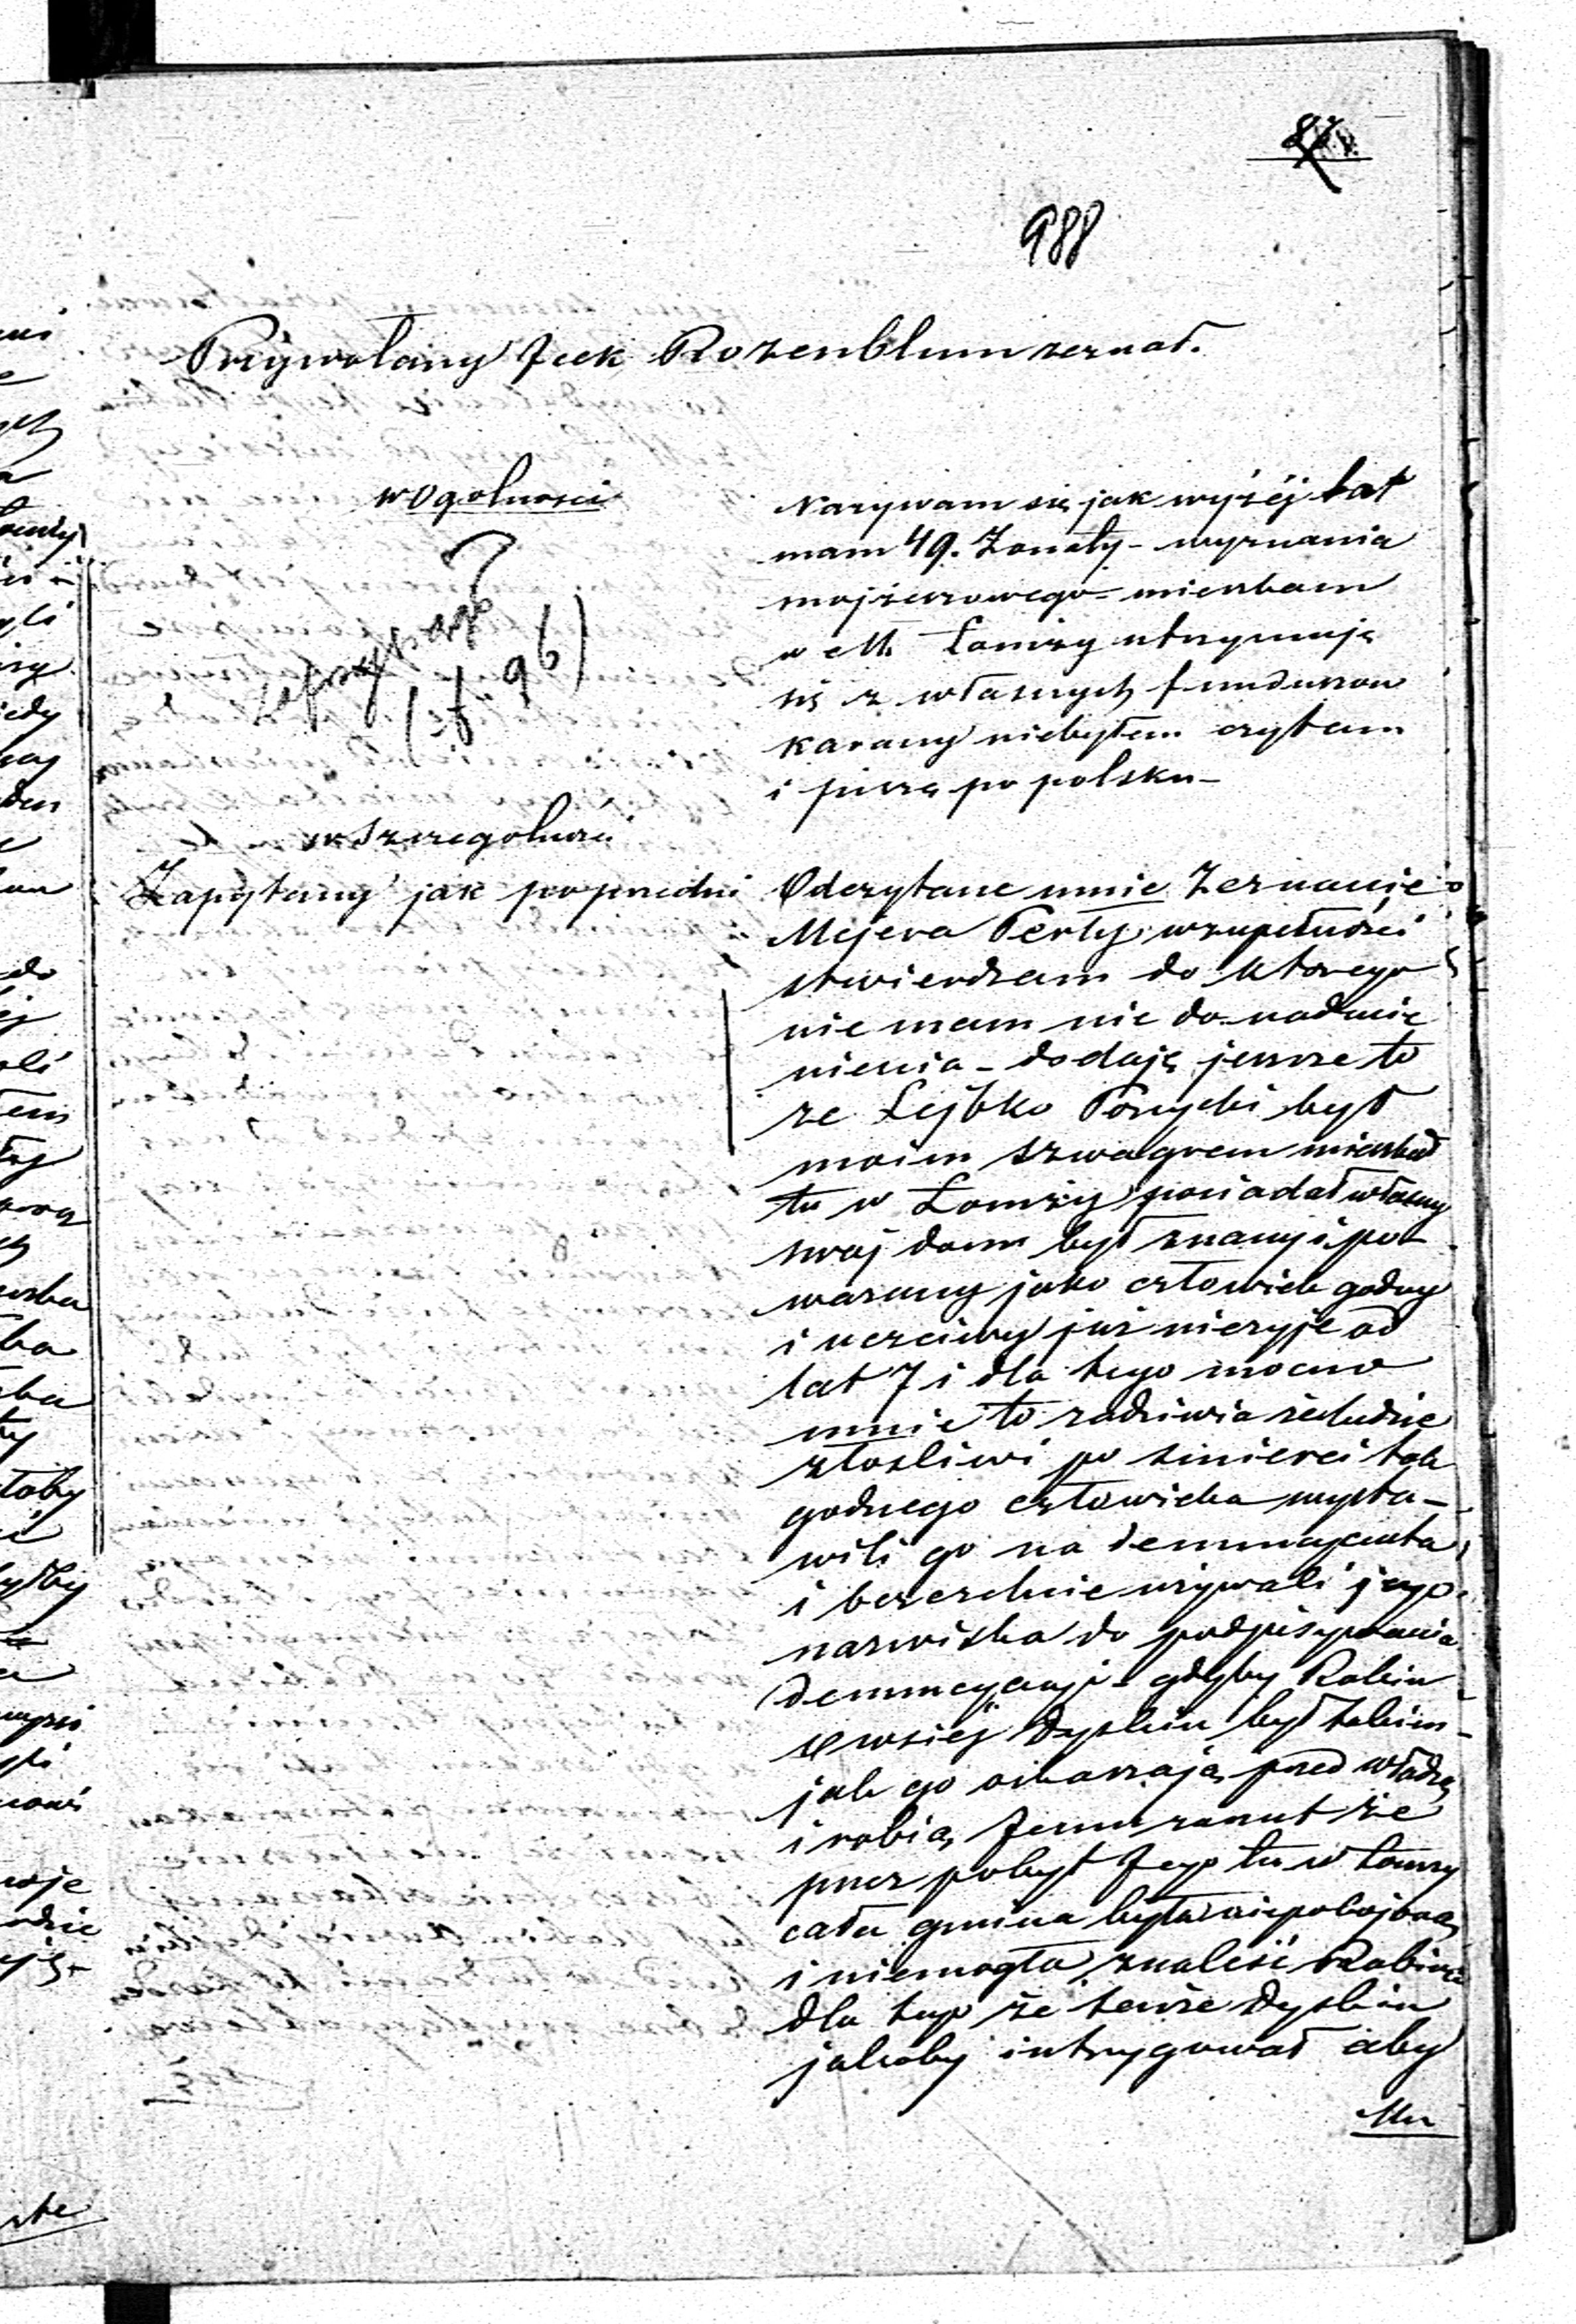 988
Przywołany Icek Rozenblum zeznał.
w Ogolnosci
Nazywam się jak wyżéj lat
mam 49. Zonaty - wyznania
mojzeszowego - mieszkam
w M. Łomży utrzymuję
się z własnych funduszow
karany niebyłem czytam
i piszę po polsku -
(f 96)
w Szczegolnosci
Zapytany jak poprzedni
Odczytane mnie Zeznanie
Mejera Perły wzupełności
stwierdzam do ktorego
nie mam nic do nadmie
nienia - dodaję jeszcze to
ze Lejbko Pozycki był
moim szwagrem mieszkał
tu w Łomży posiadał własny
swoj dom był znany i po-
wazany jako człowiek godny
i uczciwy juz niezyje od
lat 7 i dla tego mocno
mnie to zadziwia że ludzie
złosliwi po smierci tak
godnego człowieka wysta-
wili go na denuncyanta
i bezczelnie uzywali jego
nazwiska do podpisywania
denuncyacyi - gdyby Rabin
Owsiej Dyskin był takim -
jak go oskarzają przed władzą
i robią Jemu zarzut że
przez pobyt Jego tu w Łomzy
cała gmina była niepokojona
i niemogła znaleść Rabina
dla tego że tenże Dyskin
jakoby intrygował aby
Mu